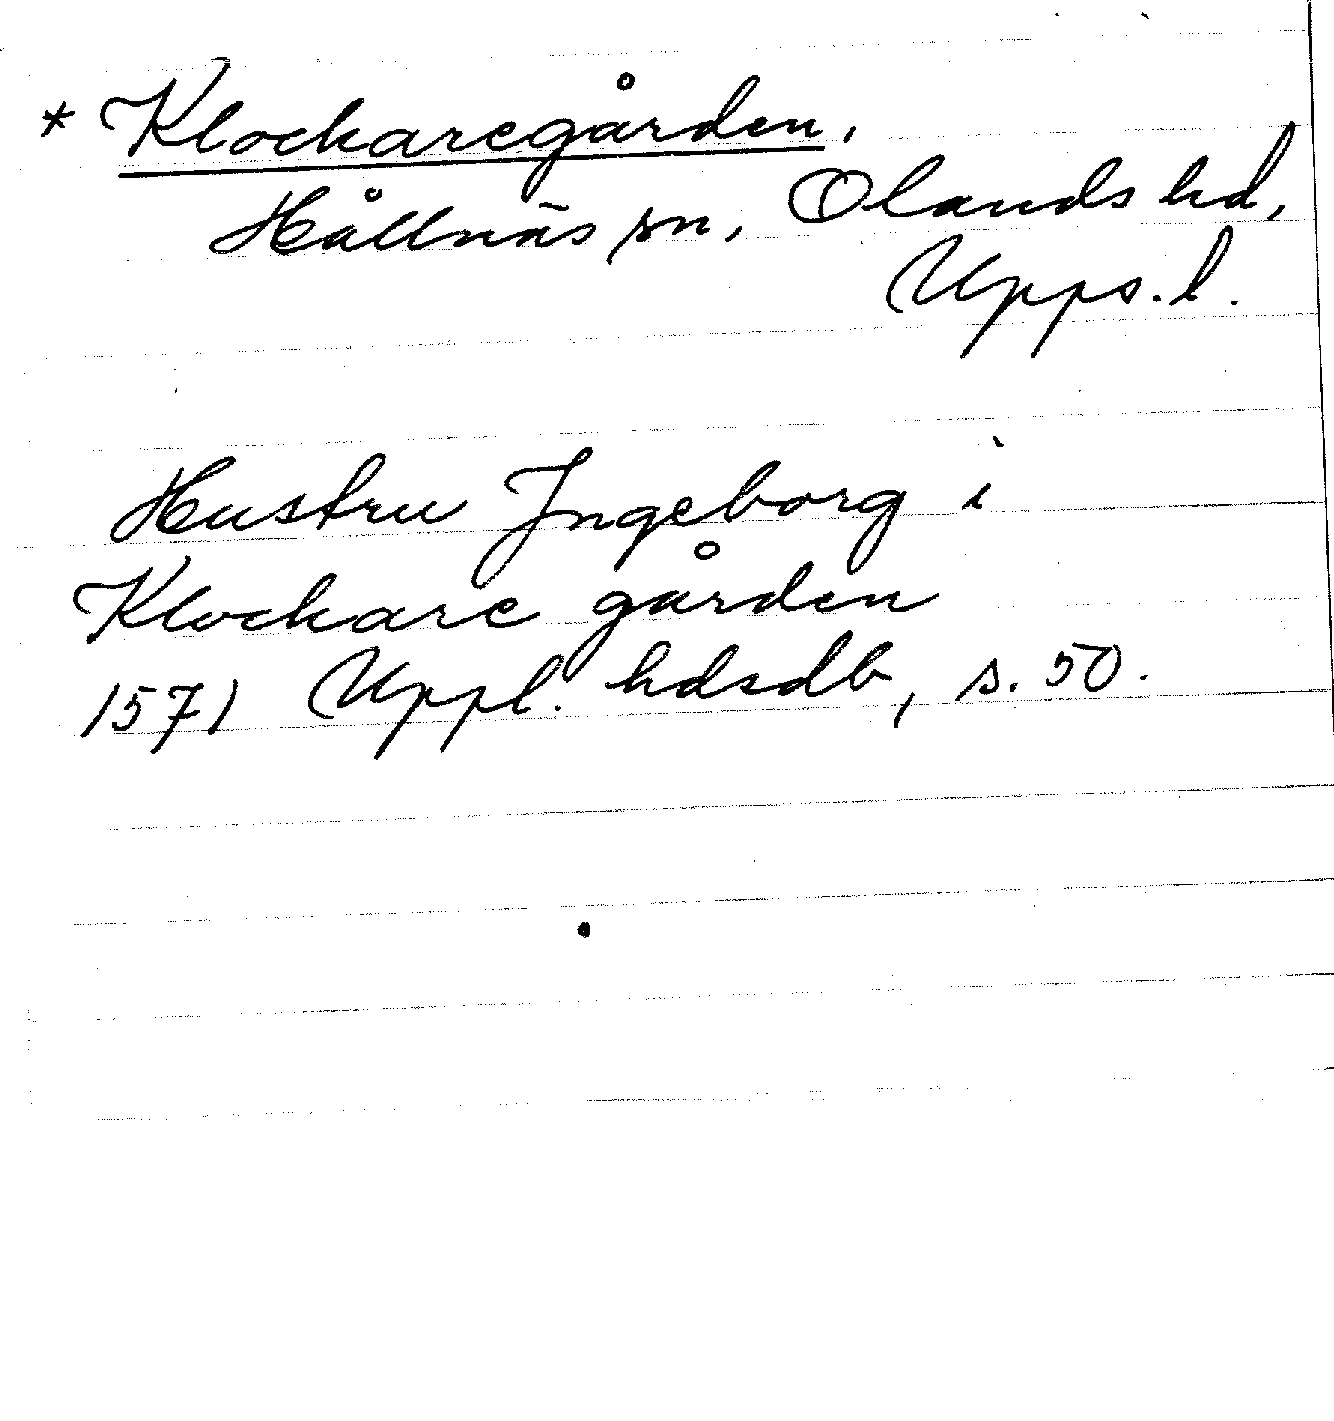 * Klockaregården,
Hållnäs sn, Olands hd,
Upps. l.
Hustru Ingeborg i
Klockare gården
1571 Uppl. hdsdb, s. 50.